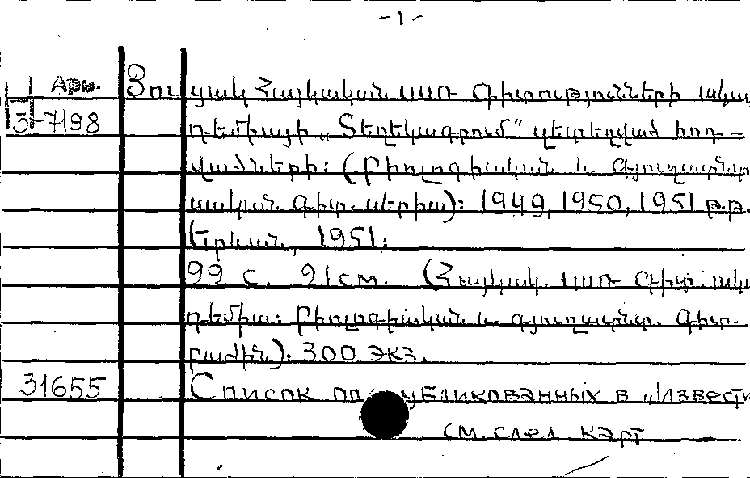 -1-
Арм. Ցուցակ Հայկական ՍՍՌ Գիտությունների ակա
3-7198 դեմիայի „Տեղեկագրում" զետեղված հոդ-
վածների: (Բիոլոգիական և գյուղատնտ
ական գիտ. սերիա): 1949, 1950, 1951 թ.թ.
Երևան, 1951.
99 с. 21см. (Հայկակ. ՍՍՌ Գիտ. ակա
դեմիա: Բիոլոգիական և գյուղատնտ. գիտ.
բաժին): 300 экз.
31655 Список опубликованных в „Извести
см. след. карт